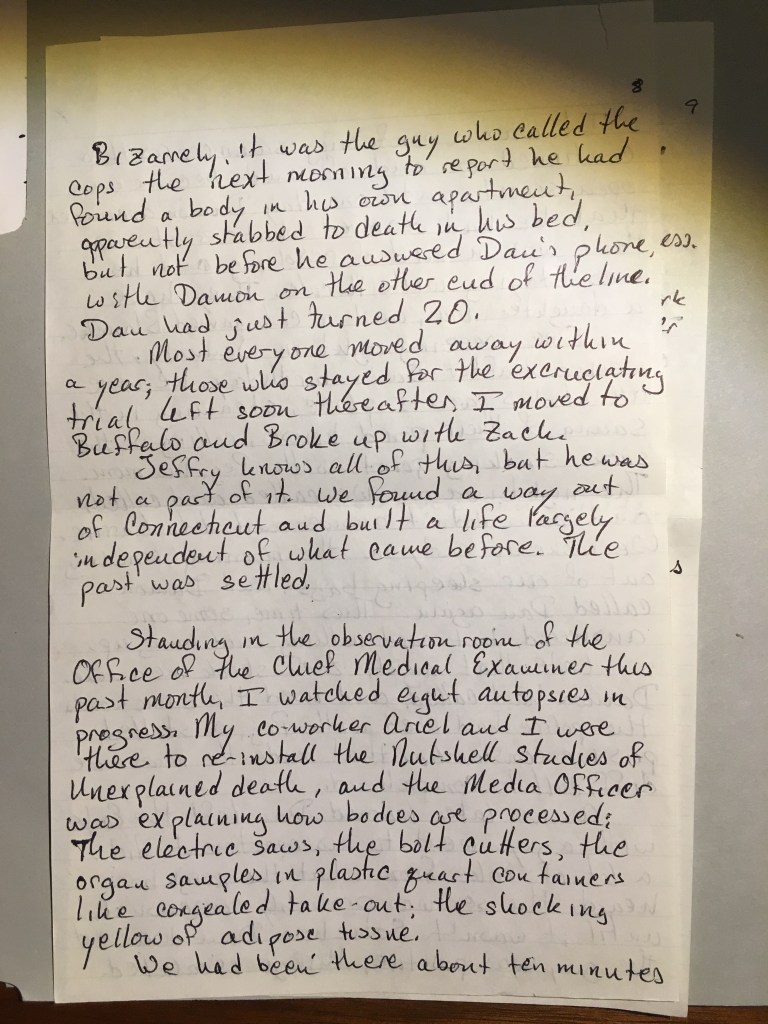 8
9
Bizarrely, it was the guy who called the
cops the next morning to report he had
found a body in his own apartment,
apparently stabbed to death in his bed,
but not before he answered Dan's phone,
ess.
with Damon on the other end of the line.
rk
Dan had just turned 20.
'r
Most everyone moved away within
a year; those who stayed for the excruciating
trial left soon thereafter. I moved to
Buffalo and Broke up with Zack.
Jeffry knows all of this, but he was
not a part of it. We found a way out
of Connecticut and built a life largely
independent of what came before. The
past was settled.
s
Standing in the observation room of the
Office of the Chief Medical Examiner this
past month, I watched eight autopsies in
progress. My co-worker Ariel and I were
there to re-install the Nutshell Studies of
Unexplained death, and the Media Officer
was explaining how bodies are processed:
The electric saws, the bolt cutters, the
organ samples in plastic quart containers
like congealed take-out; the shocking
yellow of adipose tissue.
We had been there about ten minutes